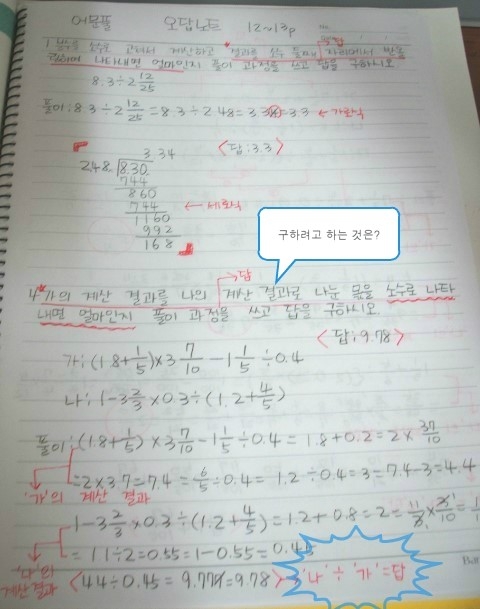 어봉풀 오답노트 12~13p
1. 분수를 소수로 고쳐서 계산하고 결과를 소수 둘째 자리에서 반올림
하여 나타내면 얼마인지 풀이 과정을 쓰고 답을 구하시오
8.3÷2 12/25
풀이: 8.3÷2 12/25=8.3÷2.48=3.34=3.3 ← 가로식
3.34 <답:3.3>
2.48.)8.30.
744
860
744 ← 세로식
1160
992
168
구하려고 하는 것은?
답
4* 가의 계산 결과를 나의 계산 결과로 나눈 몫을 소수로 나타
내면 얼마인지 풀이 과정을 쓰고 답을 구하시오.
<답:9.78>
가: (1.8+1/5)×3 7/10-1 1/5÷0.4
나: 1-3 2/3×0.3÷(1.2+4/5)
풀이: (1.8+1/5)×3 7/10-1 1/5÷0.4=1.8+0.2=2×37/10
=2×3.7=7.4=6/5÷0.4=1.2÷0.4=3=7.4-3=4.4
'가'의 계산 결과
1-3 2/3×0.3÷(1.2+4/5)=1.2+0.8=2=11/3×3/10=
=1.1÷2=0.55=1-0.55=0.45
'나'의 계산결과
<4.4÷0.45=9.777=9.78> '나'÷'가'=답